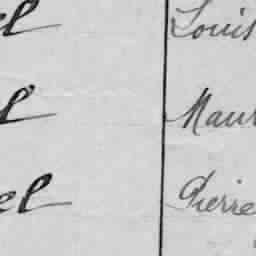 el Louis
l Maur
el Pierre